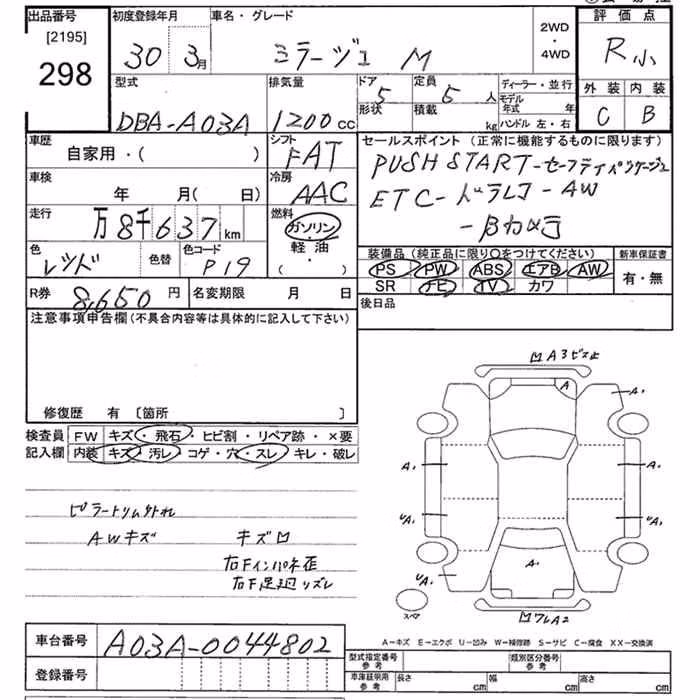 出品番号
[2195]
298
初度登録年月
30 3月
車名・グレード
ミラージュ M
2WD
・
4WD
評価点
R小
外装 内装
C B
型式
DBA-A03A
排気量
1200cc
ドア 5
形状
定員 5 人
積載 kg
ディーラー・並行
モデル年式 年
ハンドル 左・右
車歴
自家用・( )
シフト
FAT
車検
年 月( 日)
冷房
AAC
走行
万8千637km
燃料
ガソリン
・
軽油
( ・ )
色
レッド
色替
色コード
P19
R券 8,650円 名変期限 月 日
セールスポイント(正常に機能するものに限ります)
PUSH START-セーフティパッケージ
ETC-ドラレコ-AW
-Bカメラ
装備品(純正品に限り○をつけてください)
PS PW ABS エアB AW
SR ナビ TV カワ
新車保証書
有・無
後日品
注意事項申告欄(不具合内容等は具体的に記入して下さい)
修復歴 有 〔箇所 〕
検査員 FW キズ・飛石・ヒビ割・リペア跡・×要
記入欄 内装 キズ・汚レ・コゲ・穴・スレ・キレ・破レ
ピラートリム外れ
AWキズ キズ凹
右Fインパネ歪
右F足廻リズレ
凹A3ビス止
A
A1
A1
A1
UA1
UA1
UA1
A1
スペア
凹ワレA2
A~キズ E~エクボ U~凹み W~補修跡 S~サビ C~腐食 XX~交換済
車台番号 A03A-0044802
登録番号
型式指定番号
参考
類別区分番号
参考
車庫証明用
参考
長さ cm 幅 cm 高さ cm